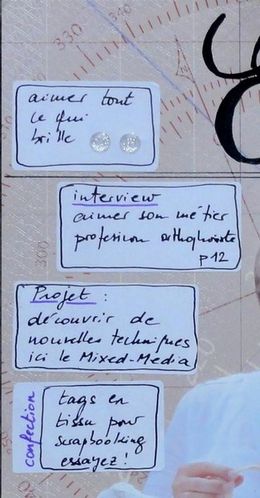 330
340
aimer tout
ce qui
brille
interview
aimer son métier
profession orthophoniste
p 12
300
Projet :
découvrir de
nouvelles techniques
ici le Mixed-Media
confection
tags en
tissu pour
scrapbooking
essayez !